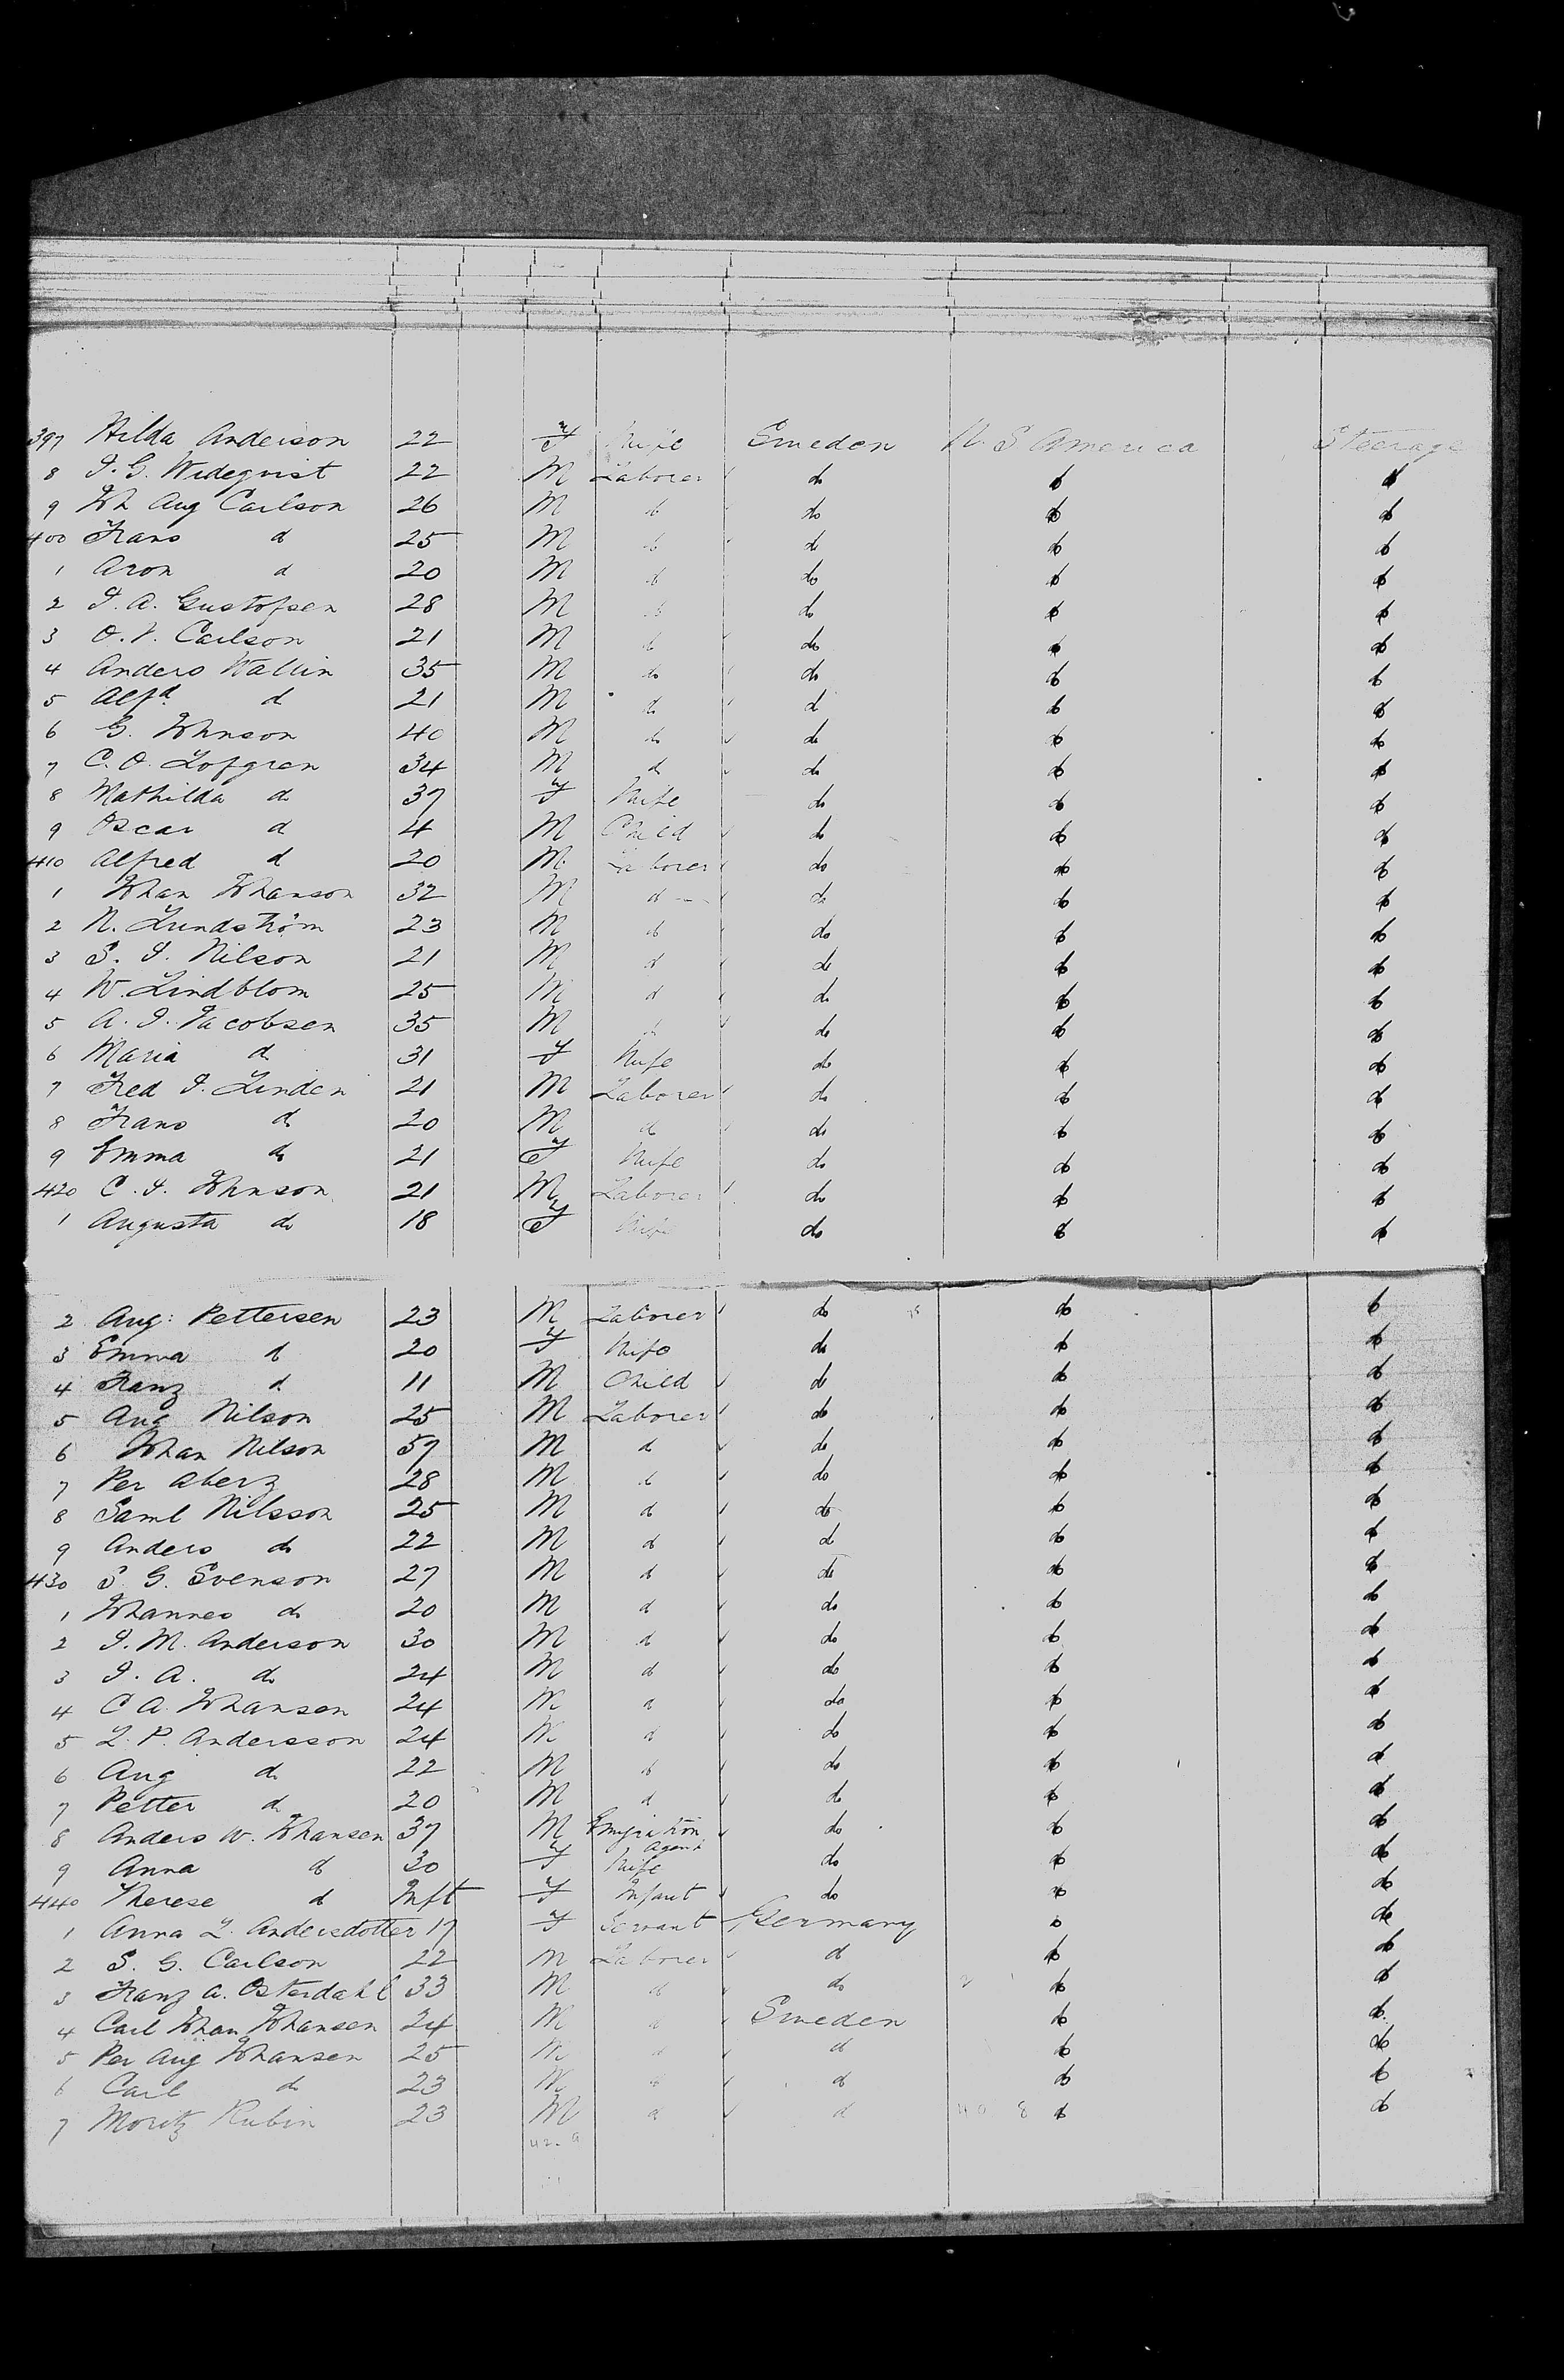 397 Hilda Anderson 22 F Wife Sweden U. S America Steerage
8 J. G. Wideqvist 22 M Laborer do do do
9 Joh Aug Carlson 26 M do do do do
400 Frans do 25 M do do do do
1 Aron do 20 M do do do do
2 J. A. Gustofsen 28 M do do do do
3 O. V. Carlson 21 M do do do do
4 Anders Wallin 35 M do do do do
5 Alfd. do 21 M do do do do
6 G. Johnson 40 M do do do do
7 C. O. Lofgren 34 M do do do do
8 Mathilda do 37 F Wife do do do
9 Oscar do 4 M Child do do do
410 Alfred do 20 M Laborer do do do
1 Johan Johanson 32 M do do do do
2 N. Lundström 23 M do do do do
3 S. J. Nilson 21 M do do do do
4 W. Lindblom 25 M do do do do
5 A. J. Jacobsen 35 M do do do do
6 Maria do 31 F Wife do do do
7 Fred J. Linden 21 M Laborer do do do
8 Frans do 20 M do do do do
9 Emma do 21 F Wife do do do
420 C. J. Johnson 21 M Laborer do do do
1 Augusta do 18 F Wife do do do
2 Aug: Pettersen 23 M Laborer do do do
3 Emma do 20 F Wife do do do
4 Franz do 11 M Child do do do
5 Aug Nilson 25 M Laborer do do do
6 Johan Nilson 57 M do do do do
7 Per Aberz 28 M do do do do
8 Saml Nilsson 25 M do do do do
9 Anders do 22 M do do do do
430 S. G. Svenson 27 M do do do do
1 Johannes do 20 M do do do do
2 J. M. Anderson 30 M do do do do
3 J. A. do 24 M do do do do
4 C A. Johansen 24 M do do do do
5 L. P. Andersson 24 M do do do do
6 Aug do 22 M do do do do
7 Petter do 20 M do do do do
8 Anders W. Johansen 37 M Emigration Agent do do do
9 Anna do 30 F Wife do do do
440 Therese do Inft F Infant do do do
1 Anna L. Andersdotter 17 F Servant Germany do do
2 S. G. Carlson 22 M Laborer do do do
3 Franz A. Osterdahl 33 M do do do do
4 Carl Johan Johansen 24 M do Sweden do do
5 Per Aug Johansen 25 M do do do do
6 Carl do 23 M do do do do
7 Moritz Rubin 23 M do do do do